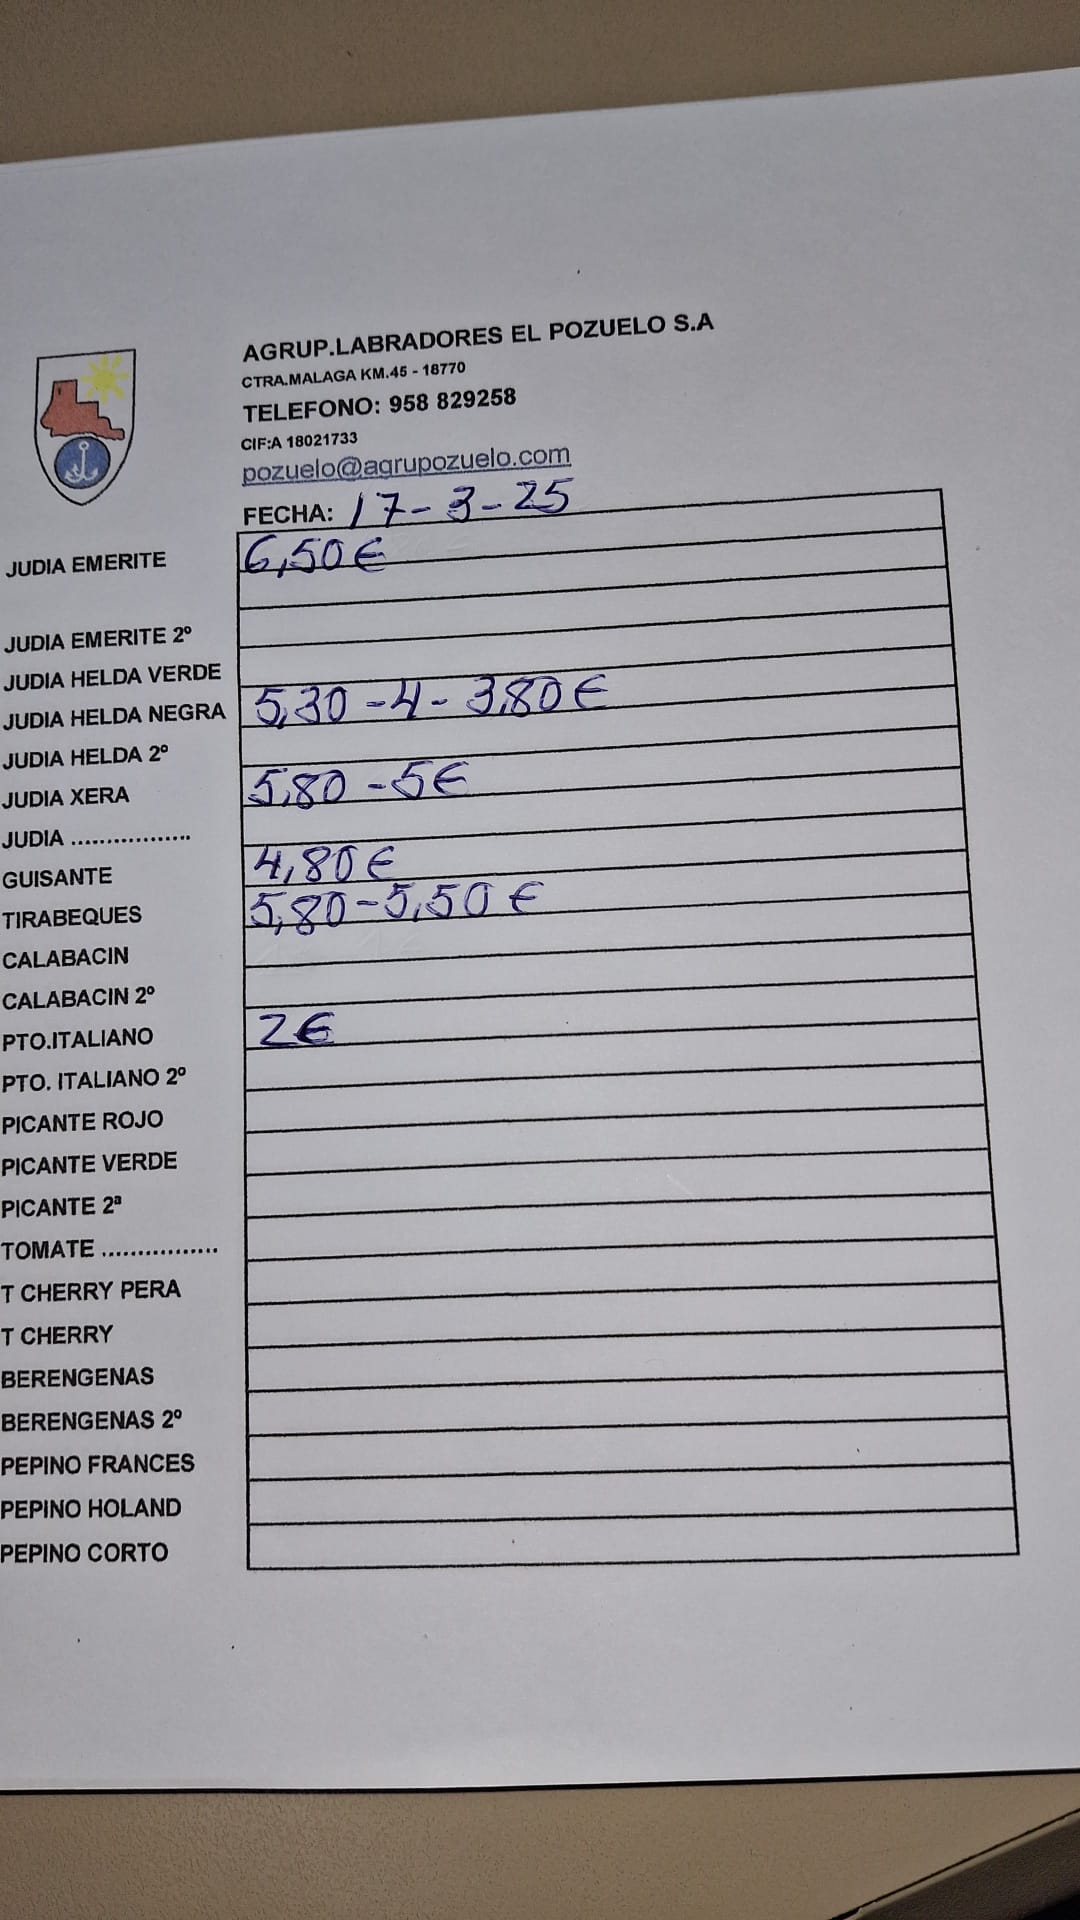 AGRUP.LABRADORES EL POZUELO S.A
CTRA.MALAGA KM.45 - 18770
TELEFONO: 958 829258
CIF:A 18021733
pozuelo@agrupozuelo.com
FECHA: 17-3-25
JUDIA EMERITE 6,50€
JUDIA EMERITE 2º
JUDIA HELDA VERDE
JUDIA HELDA NEGRA 5,30-4-3,80€
JUDIA HELDA 2º
JUDIA XERA 5,80-5€
JUDIA .................
GUISANTE 4,80€
TIRABEQUES 5,80-5,50€
CALABACIN
CALABACIN 2º
PTO.ITALIANO 2€
PTO. ITALIANO 2º
PICANTE ROJO
PICANTE VERDE
PICANTE 2ª
TOMATE ................
T CHERRY PERA
T CHERRY
BERENGENAS
BERENGENAS 2º
PEPINO FRANCES
PEPINO HOLAND
PEPINO CORTO